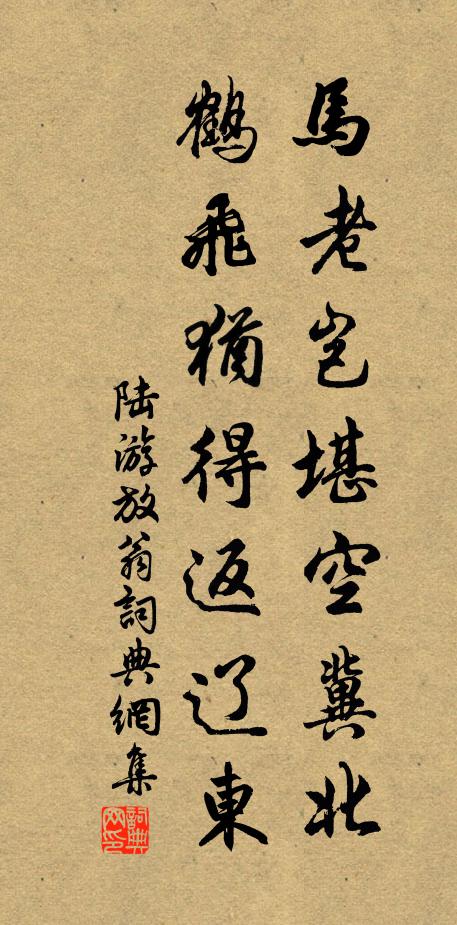 馬老豈堪空冀北
鶴飛猶得返辽東
陸游放翁詞典網集
詞典网印